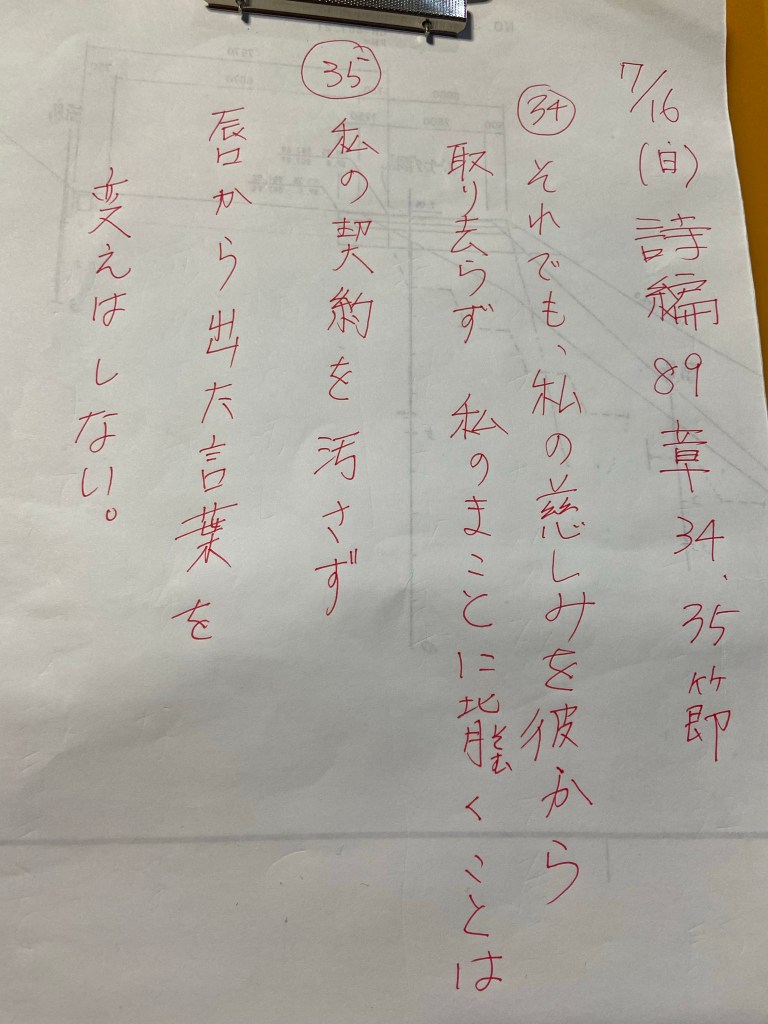 7/16(日) 詩編 89章 34、35節
㉞ それでも、私の慈しみを彼から
取り去らず 私のまことに背くことは
㉟ 私の契約を汚さず
唇から出た言葉を
変えはしない。